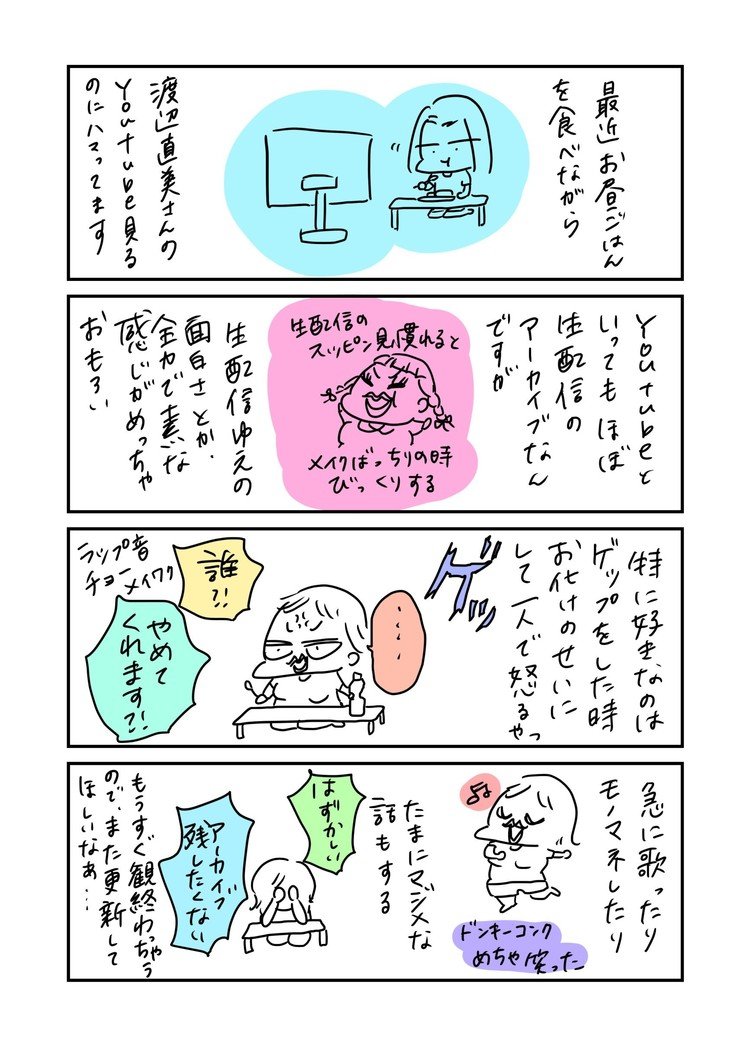 最近お昼ごはん
を食べながら
渡辺直美さんの
Youtube見る
のにハマってます
Youtubeと
いってもほぼ
生配信の
アーカイブなん
ですが
生配信の
スッピン見慣れると
メイクばっちりの時
びっくりする
生配信ゆえの
面白さとか、
全力で素な
感じがめっちゃ
おもろい
特に好きなのは
ゲップをした時
お化けのせいに
して一人で怒るやつ
ゲッ
・・・・
誰?!
ラップ音
チョーメイワク
やめて
くれます?!
急に歌ったり
モノマネしたり
ドンキーコング
めちゃ笑った
たまにマジメな
話もする
はずかしい
アーカイブ
残したくない
もうすぐ観終わっちゃう
ので、また更新して
ほしいなぁ…